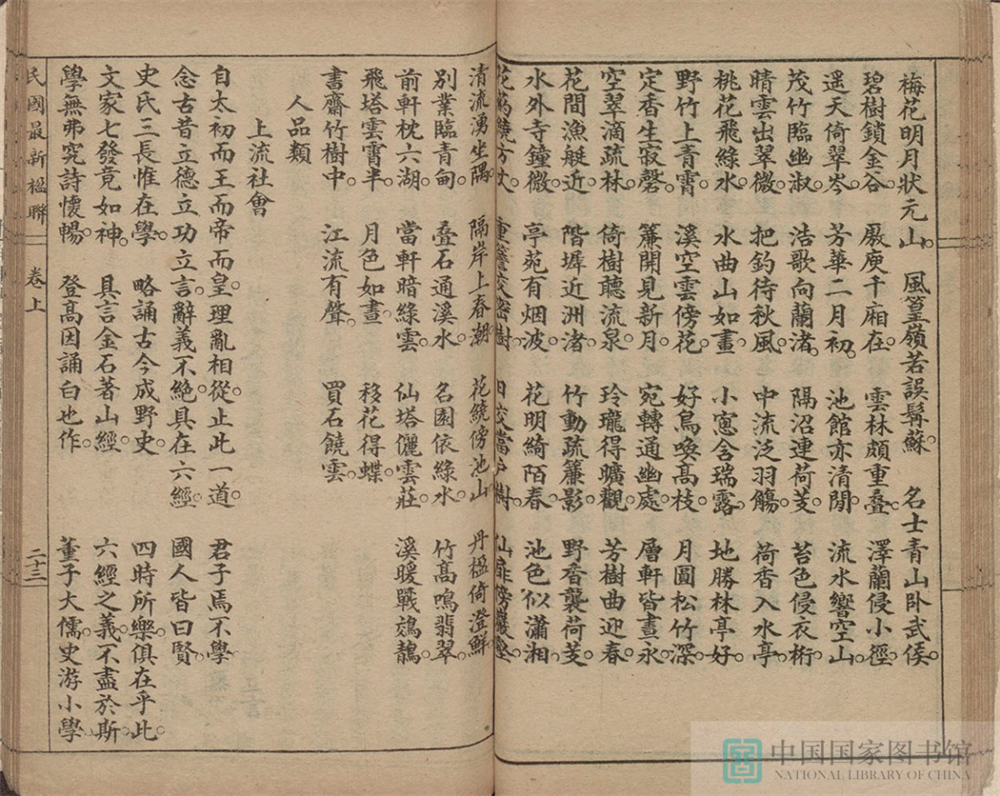 梅花明月狀元山。 風篁嶺若誤髯蘇。 名士青山卧武侯。
碧樹鎖金谷。 厫庾千廂在。 雲林頗重叠。 澤蘭侵小徑。
遥天倚翠岑。 芳華二月初。 池館亦清閒。 流水響空山。
茂竹臨幽淑。 浩歌向蘭渚。 隔沼連荷芰。 苔色侵衣桁。
晴雲出翠微。 把釣待秋風。 中流泛羽觴。 荷香入水亭。
桃花飛綠水。 水曲山如畫。 小窻含瑞露。 地勝林亭好。
野竹上青霄。 溪空雲傍花。 好鳥喚高枝。 月圓松竹深。
定香生寂磬。 簾開見新月。 宛轉通幽處。 層軒皆畫永。
空翠滴疏林。 倚樹聽流泉。 玲瓏得曠觀。 芳樹曲迎春。
花間漁艇近。 階墀近洲渚。 竹動疏簾影。 野香襲荷芰。
水外寺鐘微。 亭苑有烟波。 花明綺陌春。 池色似瀟湘。
花 繞方 樹。 當 樹。 仙 傍巖
清流湧坐隅。 隔岸上春潮 花繞傍池山 丹楹倚澄鮮
別業臨青甸。 叠石通溪水。 名園依綠水。 竹高鳴翡翠。
前軒枕六湖。 當軒暗綠雲。 仙塔儷雲莊。 溪暖戲鵁鶄。
飛塔雲霄半。 月色如畫。 移花得蝶。
書齋竹樹中。 江流有聲。 買石饒雲。
人品類
上流社會
自太初而王而帝而皇。理亂相從。止此一道。 君子焉不學
念古昔立德立功立言。辭義不絶。具在六經。 國人皆曰賢。
史氏三長惟在學。 略誦古今成野史。 四時所樂。俱在乎此。
文家七發竟如神。 具言金石著山經。 六經之義。不盡於斯。
學無弗究詩懷暢。 登高因誦白也作。 董子大儒。史游小學
民國最新楹聯 卷上 二十三
中国国家图书馆
NATIONAL LIBRARY OF CHINA